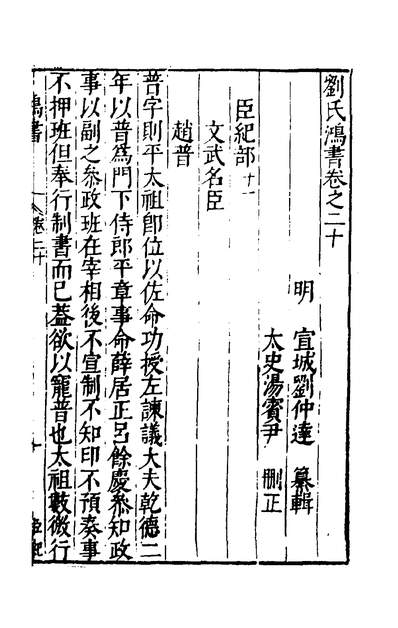 劉氏鴻書卷之二十
明 宣城劉仲達 纂輯
太史湯賓尹 刪正
臣紀部十一
文武名臣
趙普
普字則平太祖卽位以佐命功授左諫議大夫乾德二
年以普爲門下侍郎平章事命薛居正呂餘慶叅知政
事以副之叅政班在宰相後不宣制不知印不預奏事
不押班但奉行制書而已蓋欲以寵普也太祖數微行
鴻書 卷二十